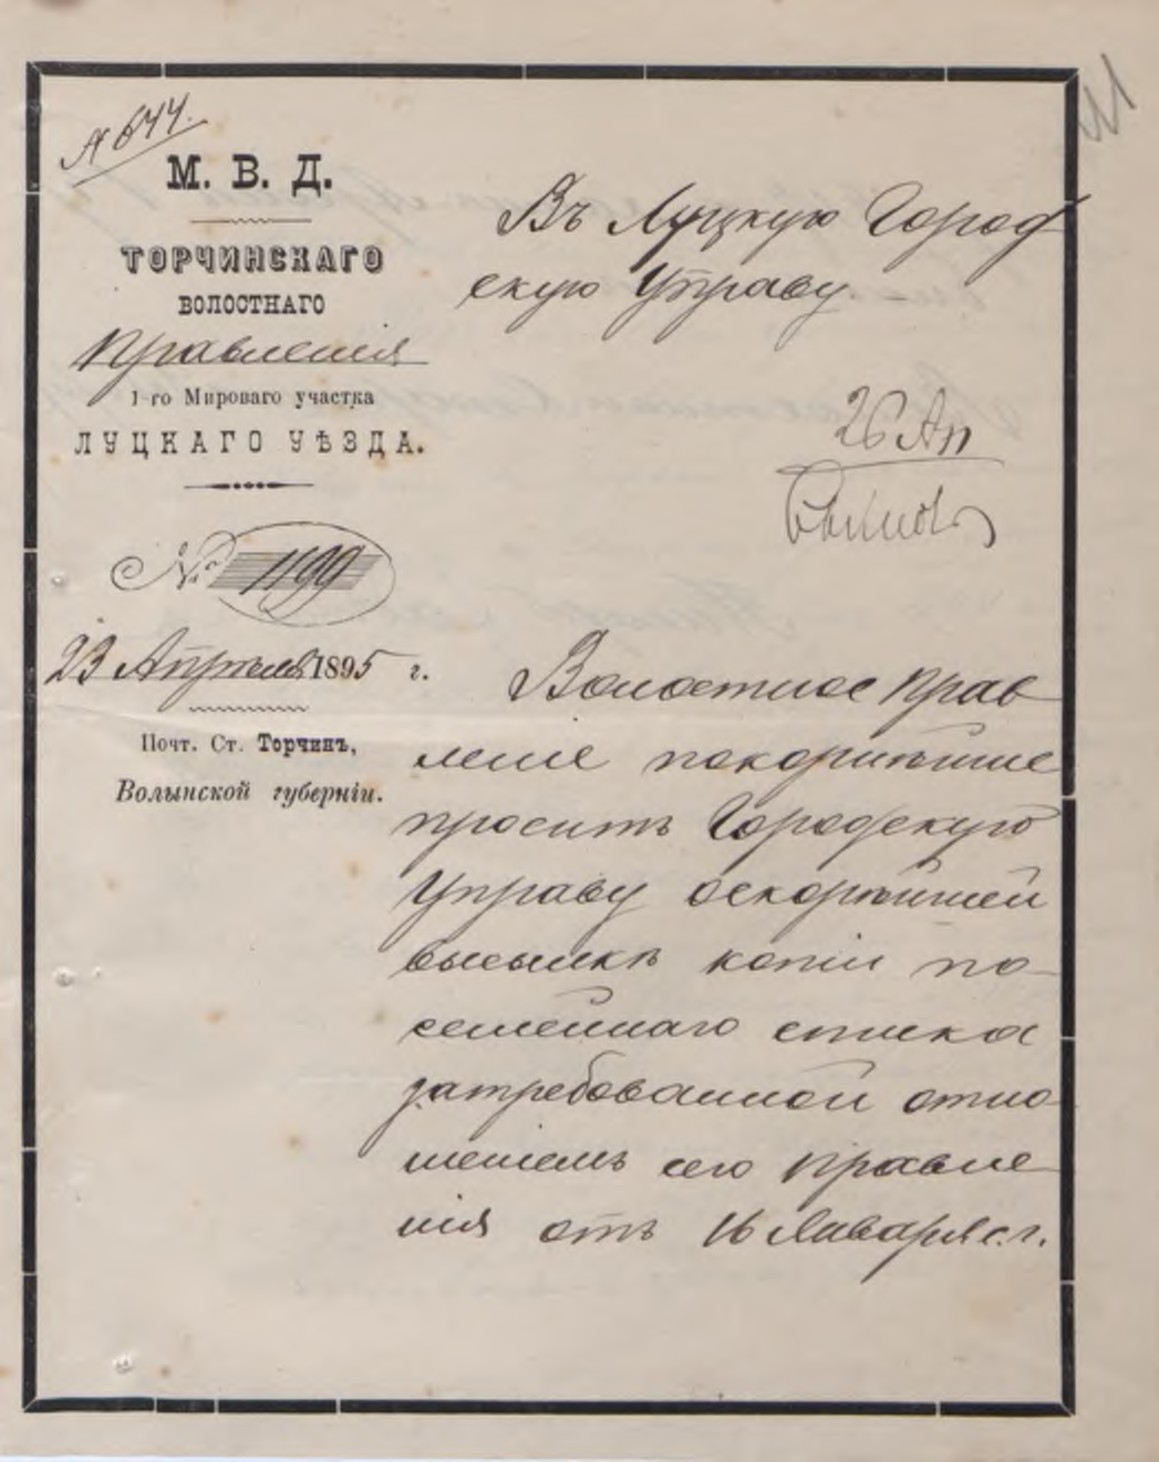 № 644.
М. В. Д.
ТОРЧИНСКАГО
ВОЛОСТНАГО
Правленія
1-го Мироваго участка
ЛУЦКАГО УѢЗДА.
№ 1199
23 Апрѣля 1895 г.
Почт. Ст. Торчинъ,
Волынской губерніи.
Въ Луцкую Город
скую Управу.
26 Ап
Волостное Прав
леніе покорнѣйше
проситъ Городскую
Управу оскорѣйшей
высылкѣ копіи по-
семейнаго списка
затребованной отно-
шеніемъ сего Правле
нія отъ 16 Января с. г.